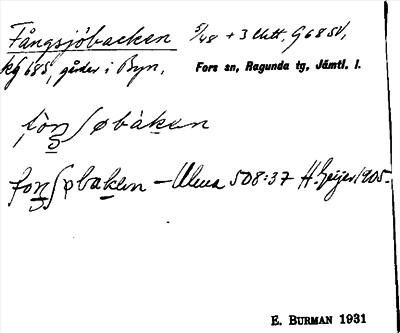 Fångsjöbacken 5/48 + 3 Utt., G 68 SV,
kg 685, gårdar i Byn, Fors sn, Ragunda tg, Jämtl. l.
fòŋʃøbàken
foŋʃøbaken – Ulma 508:37 H. Geijer 1905.
E. BURMAN 1931